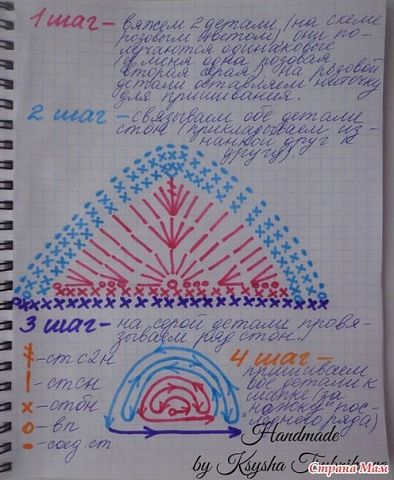 1 шаг - вяжем 2 детали (на схеме
розовым цветом) они по-
лучаются одинаковые
(у меня одна розовая
вторая серая) На розовой
детали оставляем ниточку
для пришивания.
2 шаг - связываем обе детали
стбн (прикладываем из-
нанкой друг к
другу).
3 шаг - на серой детали провя-
зываем ряд стбн.
- ст с2н
- стсн
- стбн
- вп
- соед. ст.
4 шаг -
пришиваем
обе детали к
шапке (за
"ножку" пос-
ледного ряда)
Handmade
by Ksysha
Страна Мам